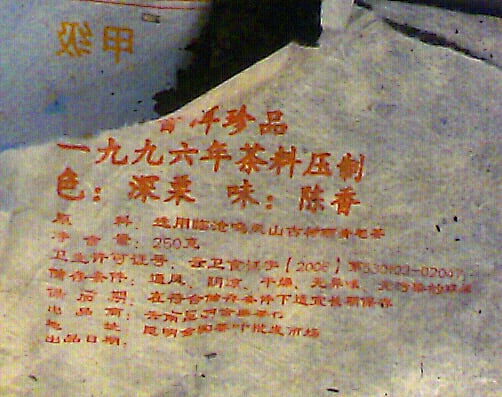 甲级
普洱珍品
一九九六年茶料压制
色：深栗 味：陈香
原 料：选用临沧鸣凤山古树晒青毛茶
净 含 量：250克
卫生许可证号：云卫食证字【2006】第530103-0204
储存条件：通风、阴凉、干燥、无异味、无污染的环境
储 后 期：在符合储存条件下适宜长期保存
出 品 商：云南昆明
地 址：昆明金 茶叶批发市场
出品日期：